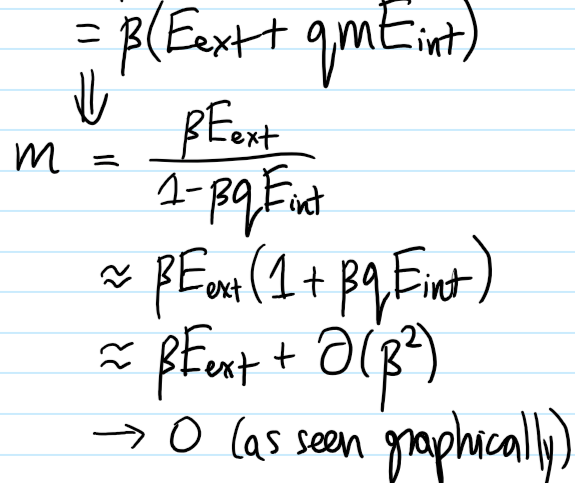 = β(E_ext + qmE_int)
⇓
m = βE_ext / (1 - βqE_int)
≈ βE_ext(1 + βqE_int)
≈ βE_ext + O(β²)
→ 0 (as seen graphically)